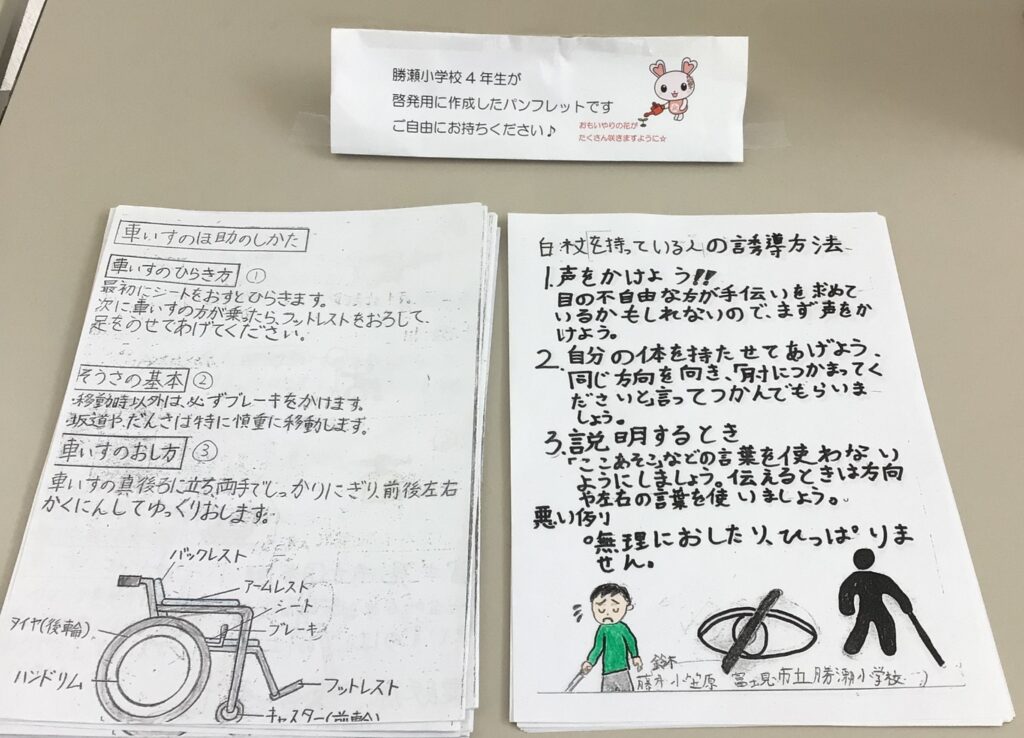 勝瀬小学校4年生が
啓発用に作成したパンフレットです
ご自由にお持ちください♪
おもいやりの花が
たくさん咲きますように☆
車いすのほ助のしかた
車いすのひらき方 ①
最初にシートをおすとひらきます。
次に車いすの方が乗ったら、フットレストをおろして、
足をのせてあげてください。
そうさの基本 ②
・移動時以外は、必ずブレーキをかけます。
・坂道や、だんさは特に慎重に移動します。
車いすのおし方 ③
車いすの真後ろに立ち、両手でしっかりにぎり、前後左右
かくにんしてゆっくりおします。
バックレスト
アームレスト
シート
ブレーキ
タイヤ(後輪)
ハンドリム
フットレスト
キャスター(前輪)
白杖を持っている人の誘導方法
1.声をかけよう!!
目の不自由な方が手伝いを求めて
いるかもしれないので、まず声をか
けよう。
2.自分の体を持たせてあげよう、
同じ方向を向き、「肘につかまってく
ださい」と言ってつかんでもらいま
しょう。
3.説明するとき
「ここあそこ」などの言葉を使わない
ようにしましょう。伝えるときは方向
や左右の言葉を使いましょう。
悪い例り
無理におしたり、ひっぱりま
せん。
鈴木
藤井 小笠原 富士見市立勝瀬小学校